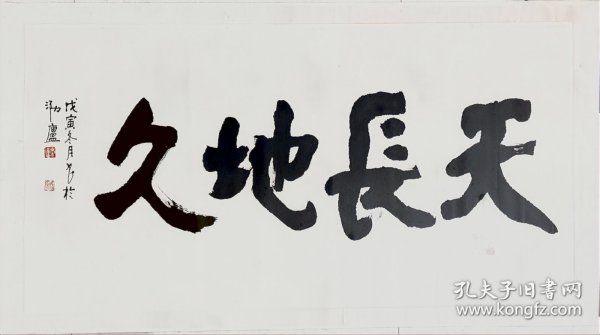 天長地久
戊寅冬月書於
沏廬
孔夫子旧书网
www.kongfz.com